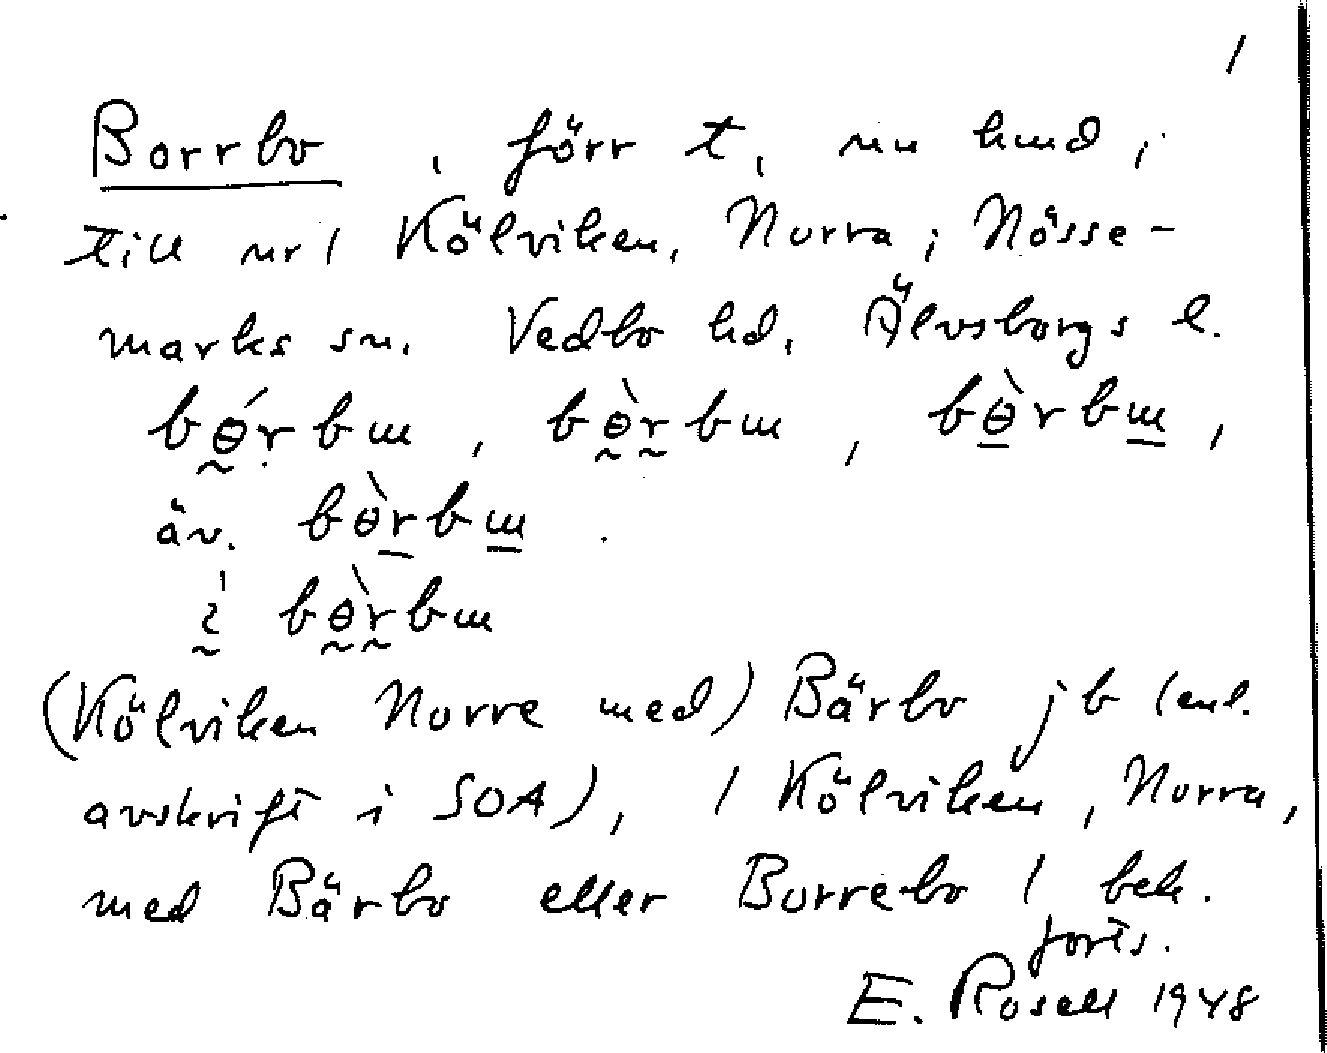 1
Borrbo, förr t, nu hmd i
till nr 1 Kölviken, Norra i Nösse-
marks sn. Vedbo hd, Älvsborgs l.
bɵ́rbɯ, bɵ̀rbɯ, bɵ̀rbɯ,
äv. bɵ̀rbɯ.
i bɵ̀rbɯ
(Kölviken Norre med) Bärbo jb (enl.
avskrift i SOA), 1 Kölviken, Norra,
med Bärbo eller Borrebo 1 bek.
forts.
E. Rosell 1948